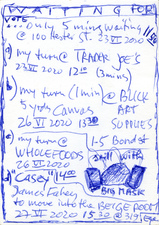 WAITING FOR
VOTE
...only 5 mins waiting
@ 100 Hester St. 23 VI 2020
a) my turn @ TRADER JOE'S
23 VI 2020 12:00 (3 mins)
b) my turn (1 min) @ BLICK
5 yds Canvas ART
26 VI 2020 13:30 SUPPLIES
c) my turn @ 1-5 Bond st
WHOLEFOODS still with
26 VI 2020
d) "CASEY" 14:00
James Fahey BIG MASK
to move into the BEIGE ROOM
27 VI 2020 15:30 @ 319